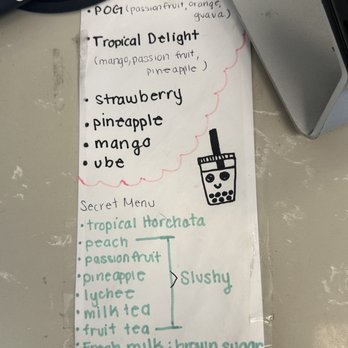 • POG (passionfruit, orange,
guava)
• Tropical Delight
(mango, passion fruit,
pineapple)
• strawberry
• pineapple
• mango
• ube
Secret Menu
• tropical Horchata
• peach
• passionfruit
• pineapple
Slushy
• lychee
• milk tea
• fruit tea
Fresh milk : brown sugar